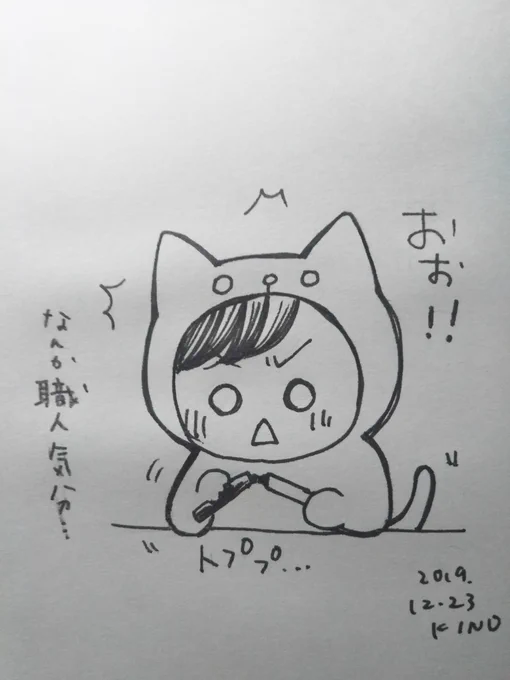 おお!!
なんか職人気分…
トププ…
2019.
12.23
KINO